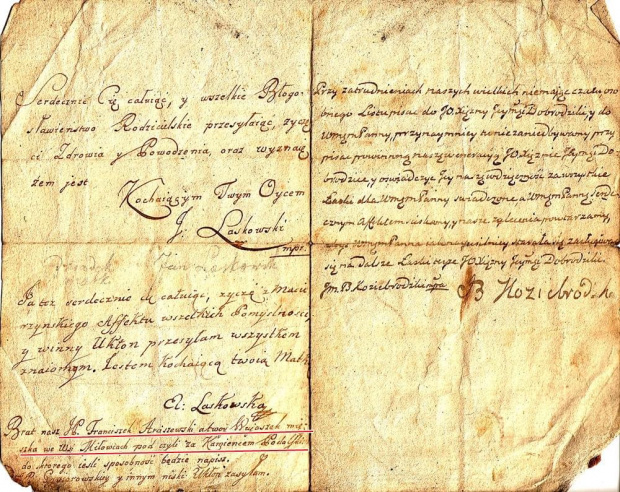 Serdecznie Cię całuiąc, y wszelkie Błogo-
sławienstwo Rodzicielskie przesyłaiąc, życzę
ci Zdrowia y Powodzenia, oraz wyznaię
żem jest
Kochaiącym Twym Oycem
J. Laskowski
mpr.
Jan Laskowsk
Ja też serdecznie całuiąc, życzę z Macie
rzynskiego Affektu wszelkich Pomyslnosci
y winny Ukłon przesyłam wszystkim
znaiomym. Jestem kochaiącą twoią Matk
El: Laskowska
Brat nasz JP. Franciszek mie
szka we Wsi Milowcach pod czyli za Kamiencem Podolskim
do ktorego iesli sposobnosć będzie napisz.
y innym niski Ukłon zasyłam.
Przy zatrudnieniach naszych wielkich niemaiąc czasu oso
bnego Listu pisac do JO. Xiężny Jeymci Dobrodziki, y do
WmPanny, przynaymniey w niezaniedbywamy przy
pisac powinną naszą weneracyą JO. Xiężnie Jeymci Do
brodzice, y oswiadczyc Jey naszą wdzięcznosć za wszystkie
Łaski dla WmPanny swiadczone, a WmPannę serde
cznym Affektem sciskamy, y nasze zalecenia powtarzamy,
WmPanna iak naypilniey starała się zasługiwac
się na Dalsze Łaski teyże JO. Xiężny Jeymci Dobrodziki.
Jm. B Koziebrodzka mpa B Koziebrodzka